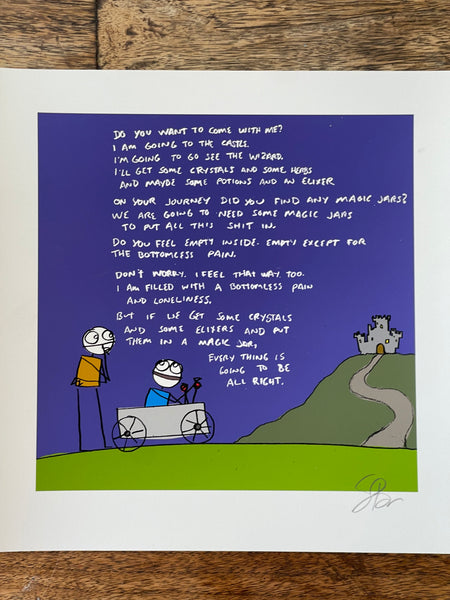 DO YOU WANT TO COME WITH ME?
I AM GOING TO THE CASTLE.
I'M GOING TO GO SEE THE WIZARD.
I'LL GET SOME CRYSTALS AND SOME HERBS
AND MAYBE SOME POTIONS AND AN ELIXER
ON YOUR JOURNEY DID YOU FIND ANY MAGIC JARS?
WE ARE GOING TO NEED SOME MAGIC JARS
TO PUT ALL THIS SHIT IN.
DO YOU FEEL EMPTY INSIDE. EMPTY EXCEPT FOR
THE BOTTOMLESS PAIN.
DON'T WORRY. I FEEL THAT WAY TOO.
I AM FILLED WITH A BOTTOMLESS PAIN
AND LONELINESS.
BUT IF WE GET SOME CRYSTALS
AND SOME ELIXERS AND PUT
THEM IN A MAGIC JAR,
EVERY THING IS
GOING TO BE
ALL RIGHT.